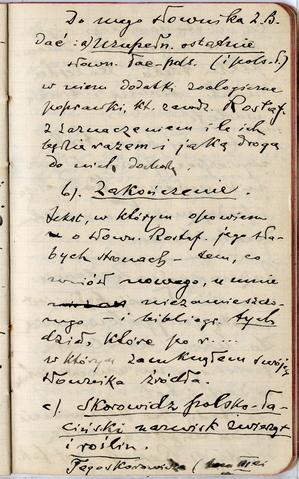 Do mego słownika Z.B.
dać: a) Uzupełn. ostatnie
słown. łac-pols. (i pols-ł)
w niem dodatki zoologiczne
poprawki, kt. zawdz. Rostaf.
z zaznaczeniem ile ich
będzie razem i jaką drogą
do nich doszedł.
b). Zakończenie.
tekst, w którym opowiem
o słown. Rostaf. jego sła-
bych stronach – tem, co
wniósł nowego, u mnie
niezamieszczo-
nego – i bibliogr. tych
dzieł, które po r....
w którym zamknąłem swojej
słownika źródła.
c). Skorowidz polsko-ła-
ciński nazwisk zwierząt
i roślin.
Jego skorowidza